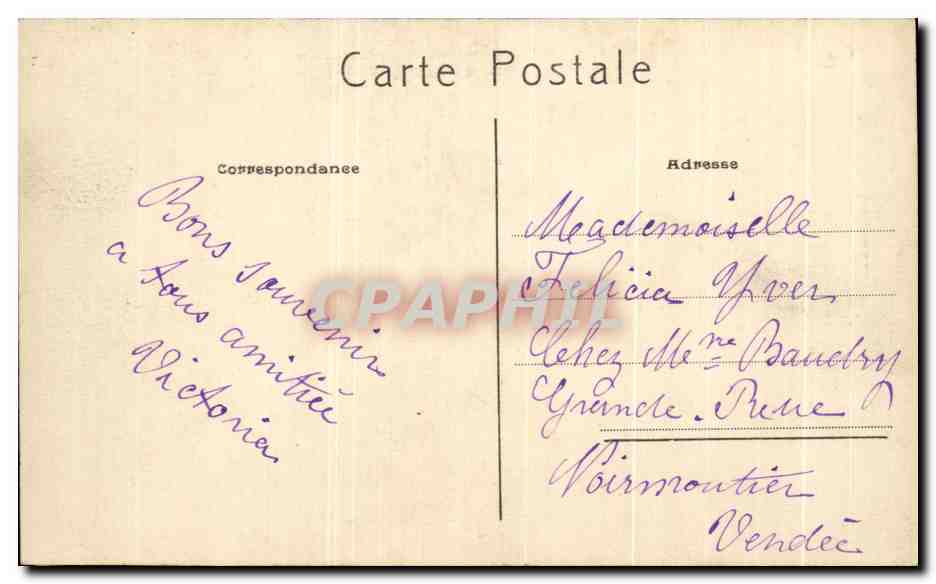 Carte Postale
Correspondance
Bons souvenirs
a tous amitiée
Victoria
Adresse
Mademoiselle
Felicia Yver
Chez Mme Baudry
Grande-Rue
Noirmoutier
Vendée
CPAPHIL